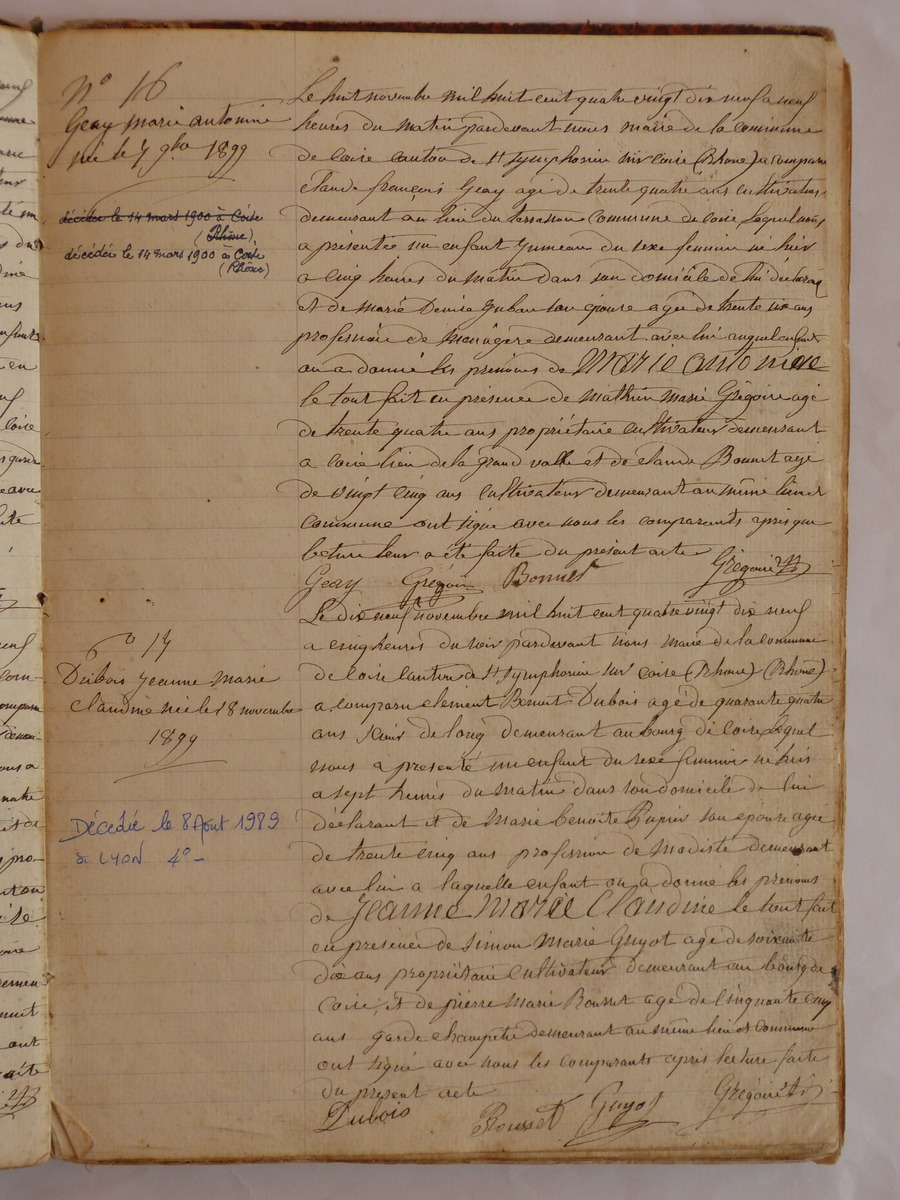 N° 16
Geay marie antonine
née le 7 9bre 1899
décédée le 14 mars 1900 à Coise
(Rhône)
décédée le 14 mars 1900 à Coise
(Rhône)
Le huit novembre mil huit cent quatre vingt dix neuf a neuf
heures du matin pardevant nous maire de la commune
de Coise canton de St Symphorien sur Coise (Rhône) a comparu
Claude françois Geay agé de trente quatre ans cultivateur
demeurant au lieu du commune de Coise, Lequel nous
a présenté un enfant Jumeau du sexe feminin né hier
a cinq heures du matin dans son domicile de lui déclarant
et de marie Denise son épouse agée de trente ans
profession de menagère demeurant avec lui auquel enfant
on a donné les prenoms de Marie antonine
le tout fait en présence de mathieu Marie Grégoire agé
de trente quatre ans propriétaire cultivateur demeurant
a Coise lieu de la grand valle et de claude Bonnet agé
de vingt cinq ans cultivateur demeurant au même lieu et
commune ont signé avec nous les comparants apres que
lecture leur a été faite du présent acte
Geay Grégoire Bonnet Grégoire
N° 17
Dubois Jeanne marie
Claudine née le 18 novembre
1899
Décédée le 8 Août 1989
à LYON 4°
Le dix neuf novembre mil huit cent quatre vingt dix neuf
a cinq heures du soir pardevant nous maire de la commune
de Coise Canton de St Symphorien sur Coise (Rhône) (Rhône)
a comparu clement Benoit Dubois agé de quarante quatre
ans Scieur de long demeurant au bourg de Coise, Lequel
nous a presenté un enfant du sexe feminin né hier
a sept heures du matin dans son domicile de lui
déclarant et de Marie benoite son épouse agée
de trente cinq ans profession de modiste demeurant
avec lui a laquelle enfant on a donné les prenoms
de Jeanne Marie Claudine le tout fait
en presence de Simon Marie Guyot agé de soixante
dix ans propriétaire cultivateur demeurant au bourg de
Coise, et de pierre Marie Rousset agé de cinquante cinq
ans garde champetre demeurant au même lieu et commune
ont signé avec nous les comparants apres lecture faite
du present acte
Dubois Rousset Guyot Grégoire